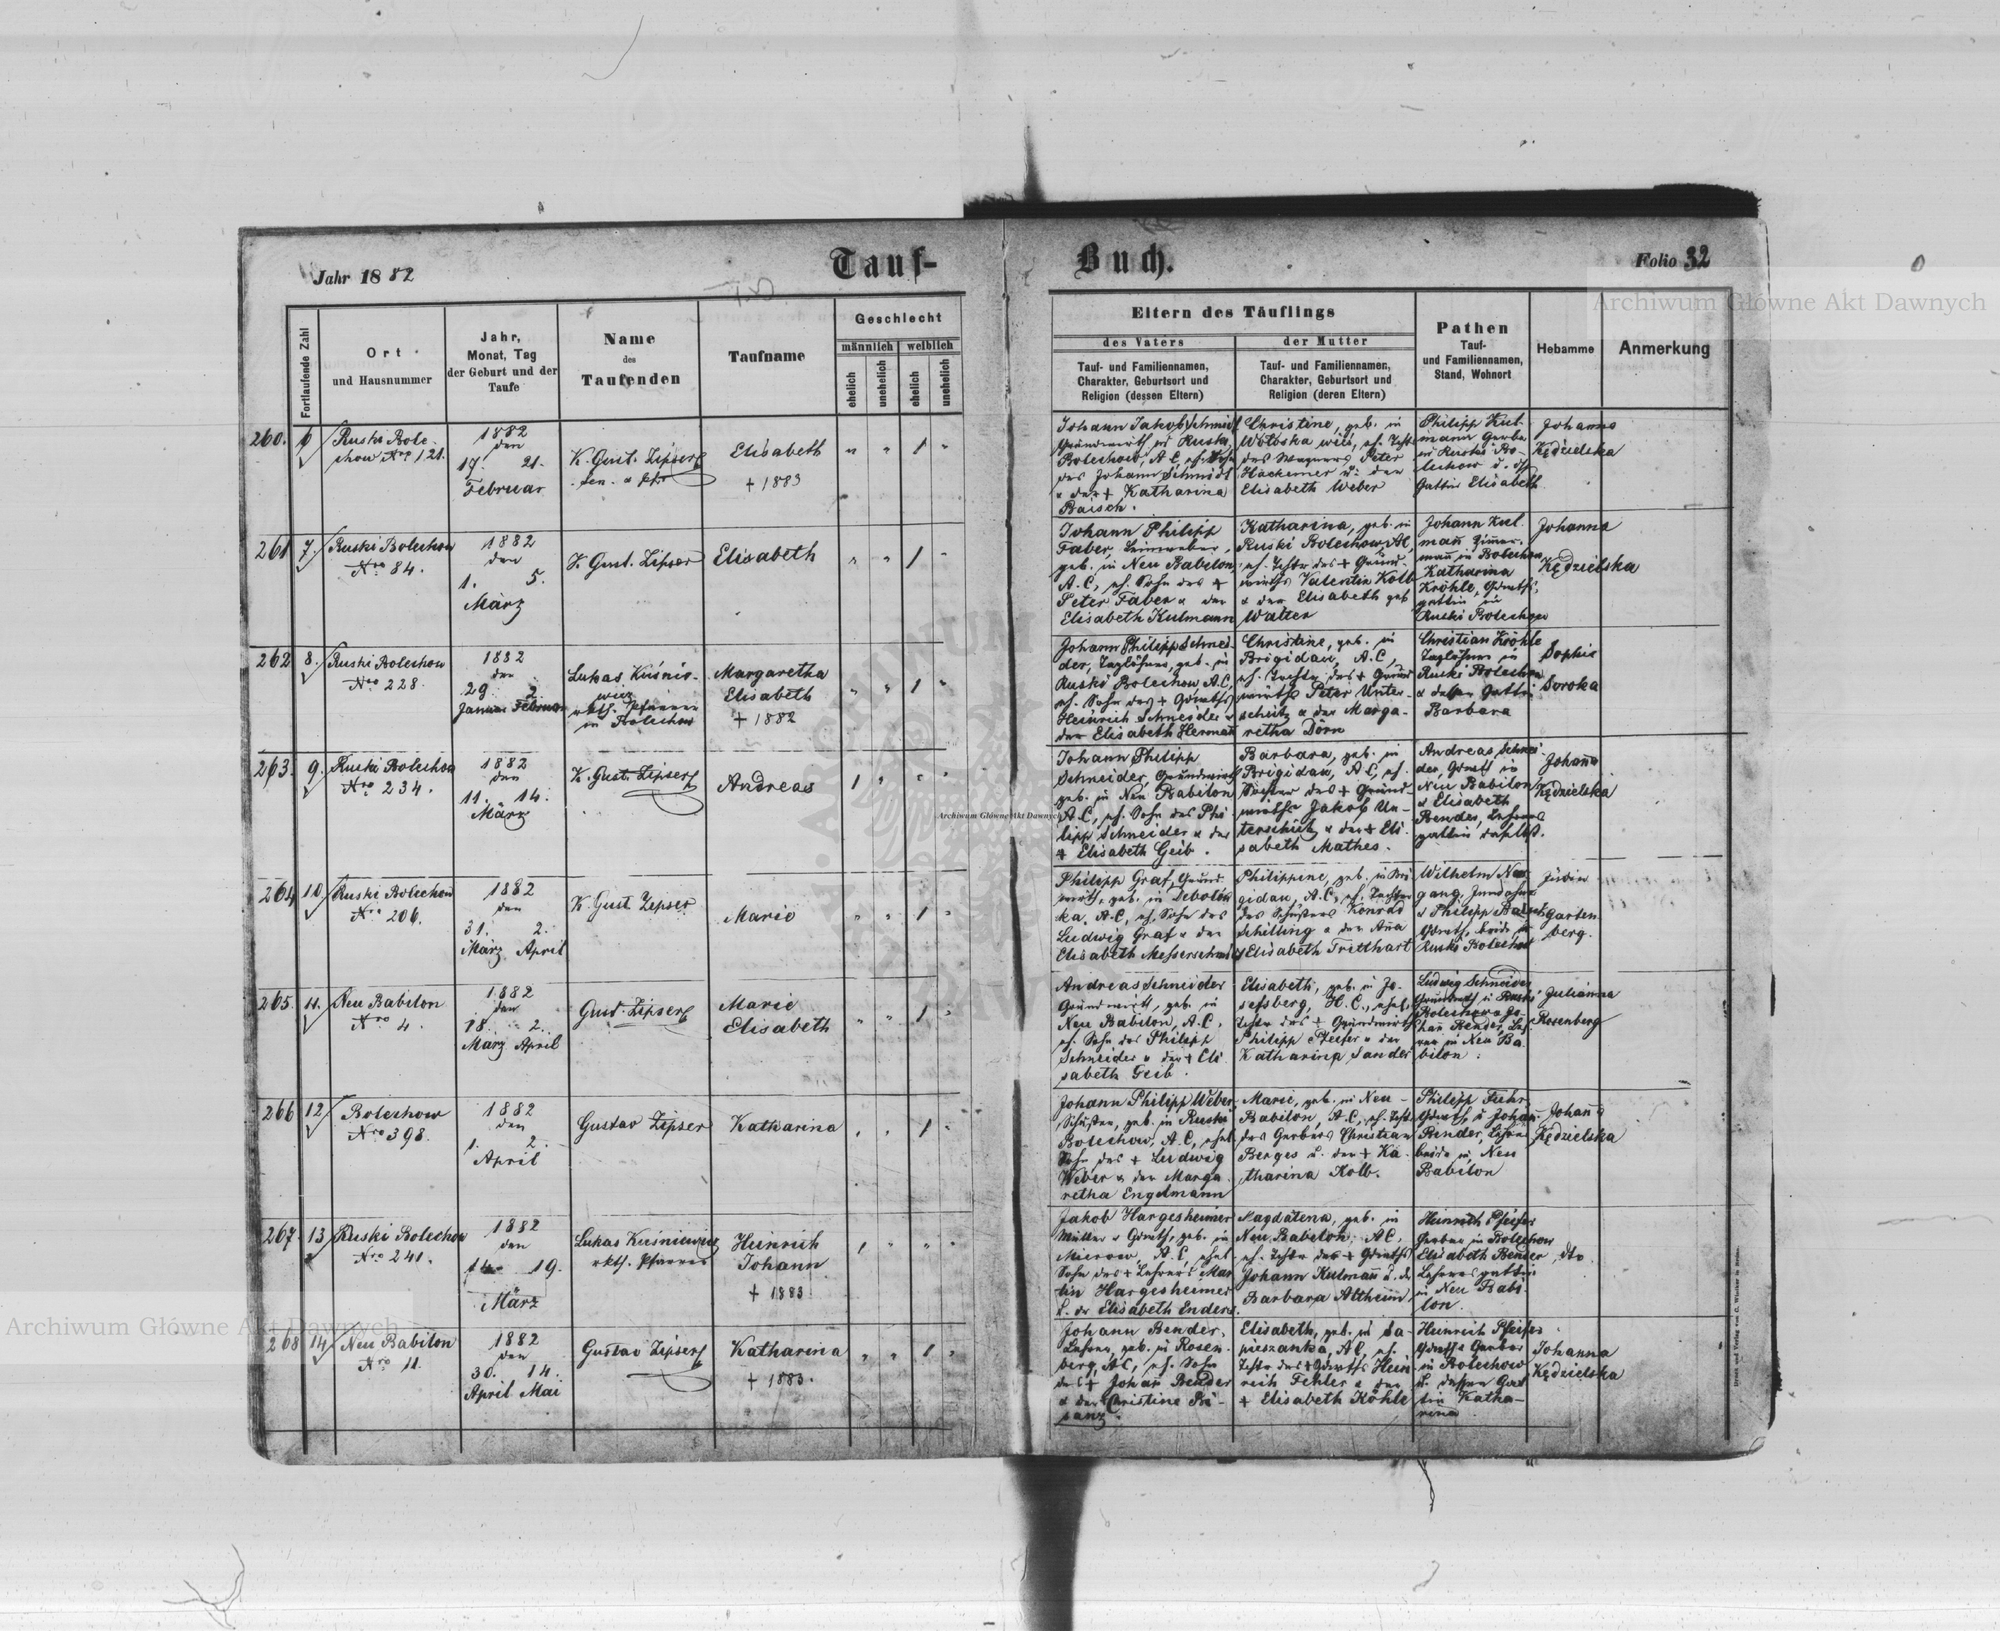 Jahr 1882
Tauf-
Buch.
Folio 32
Archiwum Główne Akt Dawnych
Fortlaufende Zahl
Ort
und Hausnummer
Jahr,
Monat, Tag
der Geburt und der
Taufe
Name
des
Taufenden
Taufname
Geschlecht
männlich
weiblich
ehelich
unehelich
ehelich
unehelich
Eltern des Täuflings
des Vaters
Tauf- und Familiennamen,
Charakter, Geburtsort und
Religion (dessen Eltern)
der Mutter
Tauf- und Familiennamen,
Charakter, Geburtsort und
Religion (deren Eltern)
Pathen
Tauf-
und Familiennamen,
Stand, Wohnort
Hebamme
Anmerkung
260. 6
Ruski Bole-
chow Nro 121.
1882
den
17. 21.
Februar
K. Gust. Zipser
sen.
Elisabeth
+ 1883
" " 1 "
Johann Jakob Schmidt
Grundwirth in Ruski
Bolechow, A.C., eh. Sohn
des Johann Schmidt
u der + Katharina
Baisch.
Christine, geb. in
eh. Tocht.
des Wagners Peter
Hackemer u. der
Elisabeth Weber
Philipp Kul-
mann Gerber
in Ruski Bo-
lechow u.
Gattin Elisabeth
Johanna
Kędzielska
261 7.
Ruski Bolechow
Nro 84.
1882
den
1. 5.
März
K. Gust. Zipser
Elisabeth
" " 1 "
Johann Philipp
Faber, Leinweber,
geb. in Neu Babilon
A.C., eh. Sohn des +
Peter Faber u der
Elisabeth Kulmann
Katharina, geb. in
Ruski Bolechow, AC,
eh. Tochter des + Grund-
wirths Valentin Kolb
u der Elisabeth geb
Walter
Johann Kul
mañ Zimmer-
mañ in Bolechow
Katharina
Kröhle, Gdwrths-
gattin in
Ruski Bolechow
Johanna
Kędzielska
262 8.
Ruski Bolechow
Nro 228.
1882
den
29. 2.
Januar Februar
Lukas Kuśnie-
wicz
rkth. Pfarrer
in Bolechow
Margaretha
Elisabeth
+ 1882
" " 1 "
Johann Philipp Schnei-
der, Taglöhner, geb. in
Ruski Bolechow A.C,
eh. Sohn des + Gdwrths
Heinrich Schneider u
der Elisabeth Herman
Christine, geb. in
Brigidau, A.C.,
eh. Tochter des + Grund
wirths Peter Unter-
schütz u der Marga-
retha Dörn
Christian Kröhle
Taglöhner in
Ruski Bolechow
u dessen Gattin
Barbara
Sophie
Soroka
263. 9.
Ruski Bolechow
Nro 234.
1882
den
11. 14.
März
K. Gust. Zipser
Andreas
1 " " "
Johann Philipp
Schneider, Grundwirth
geb. in Neu Babilon
A.C., eh. Sohn des Phi-
lipp Schneider u der
+ Elisabeth Geib.
Barbara, geb. in
Brigidau, AC, eh.
Tochter des + Grund-
wirths Jakob Un-
terschütz u der + Eli-
sabeth Mathes.
Andreas Schnei-
der, Gdwrth in
Neu Babilon
u Elisabeth
Bender, Lehrers
gattin daselbst.
Johaña
Kędzielska
264 10.
Ruski Bolechow
Nro 206.
1882
den
31. 2.
März April
K. Gust Zipser
Marie
" " 1 "
Philipp Graf, Grund-
wirth, geb. in Debolów
ka, A.C., eh. Sohn des
Ludwig Graf u der
Elisabeth Messerschmidt
Philippine, geb. in Bri
gidau, A.C., eh. Tochter
des Schusters Konrad
Schilling u der Aña
Elisabeth Tritthart
Wilhelm Neu
gang,
u Philipp
Gdwrth, beide in
Ruski Bolechow
Jüdin
Garten
berg.
265. 11.
Neu Babilon
Nro 4.
1882
den
18. 2.
März April
Gust. Zipser
Marie
Elisabeth
" " 1 "
Andreas Schneider
Grundwirth, geb. in
Neu Babilon, A.C.,
eh. Sohn des Philipp
Schneider u der + Eli
sabeth Geib.
Elisabeth, geb. in Jo-
sefsberg, H.C., ehel.
Tochter des + Grundwirths
Philipp Pfeifer u der
Katharina Sander
Ludwig Schneider
Grundwrth in Ruski
Bolechow u Jo-
hañ Bender, Leh-
rer in Neu Ba
bilon.
Julianna
Rosenberg
266 12
Bolechow
Nro 398.
1882
den
1. 2.
April
Gustav Zipser
Katharina
" " 1 "
Johann Philipp Weber,
Schuster, geb. in Ruski
Bolechow, A.C., ehel
Sohn des + Ludwig
Weber u der Marga-
retha Engelmann
Marie, geb. in Neu-
Babilon, A.C., eh. Tocht
des Gerbers Christian
Berges u. der + Ka-
tharina Kolb.
Philipp Fuhr,
Gdwrth, u Johañ
Bender, Lehrer
beide in Neu
Babilon
Johañ a
Kędzielska
267 13
Ruski Bolechow
Nro 241.
1882
den
14. 19.
März
Lukas Kuśniewicz
rkth. Pfarrer
Heinrich
Johann
+ 1883
1 " " "
Jakob Hargesheimer
Müller u Gdwth, geb. in
Mierow, A.C, ehel
Sohn des + Lehrers Mar
tin Hargesheimer
u. dr Elisabeth Enders.
Magdalena, geb. in
Neu Babilon, AC,
eh. Tochter des + Gdwrths
Johann Kulmañ u. der
Barbara Altheim
Heinrich Pfeifer
Gerber in Bolechow
Elisabeth Bender,
Lehrersgattin
in Neu Babi
lon.
dto
268 14
Neu Babilon
Nro 11.
1882
den
30. 14.
April Mai
Gustav Zipser
Katharina
+ 1883.
" " 1 "
Johann Bender,
Lehrer, geb. in Rosen-
berg, AC, eh. Sohn
des + Johañ Bender
u der Christine Bi-
sanz.
Elisabeth, geb. in Sa-
pieszanka, AC, eh.
Tochter des + Gdwrths Hein
rich Fehler u der
+ Elisabeth Köhle
Heinrich Pfeifer
Gdwrth u Gerber
in Bolechow
u. dessen Gat
tin Katha-
rina
Johanna
Kędzielska
Archiwum Główne Akt Dawnych
Archiwum Główne Akt Dawnych